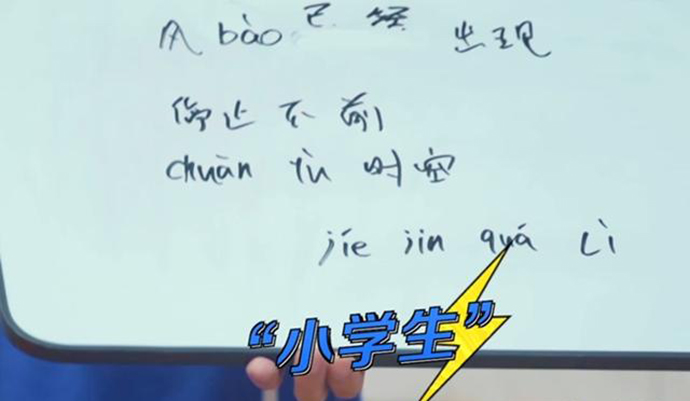 风 bào 已 经 出现
停止不前
chuān yù 时空
jíe jìn quá lì
“小学生”